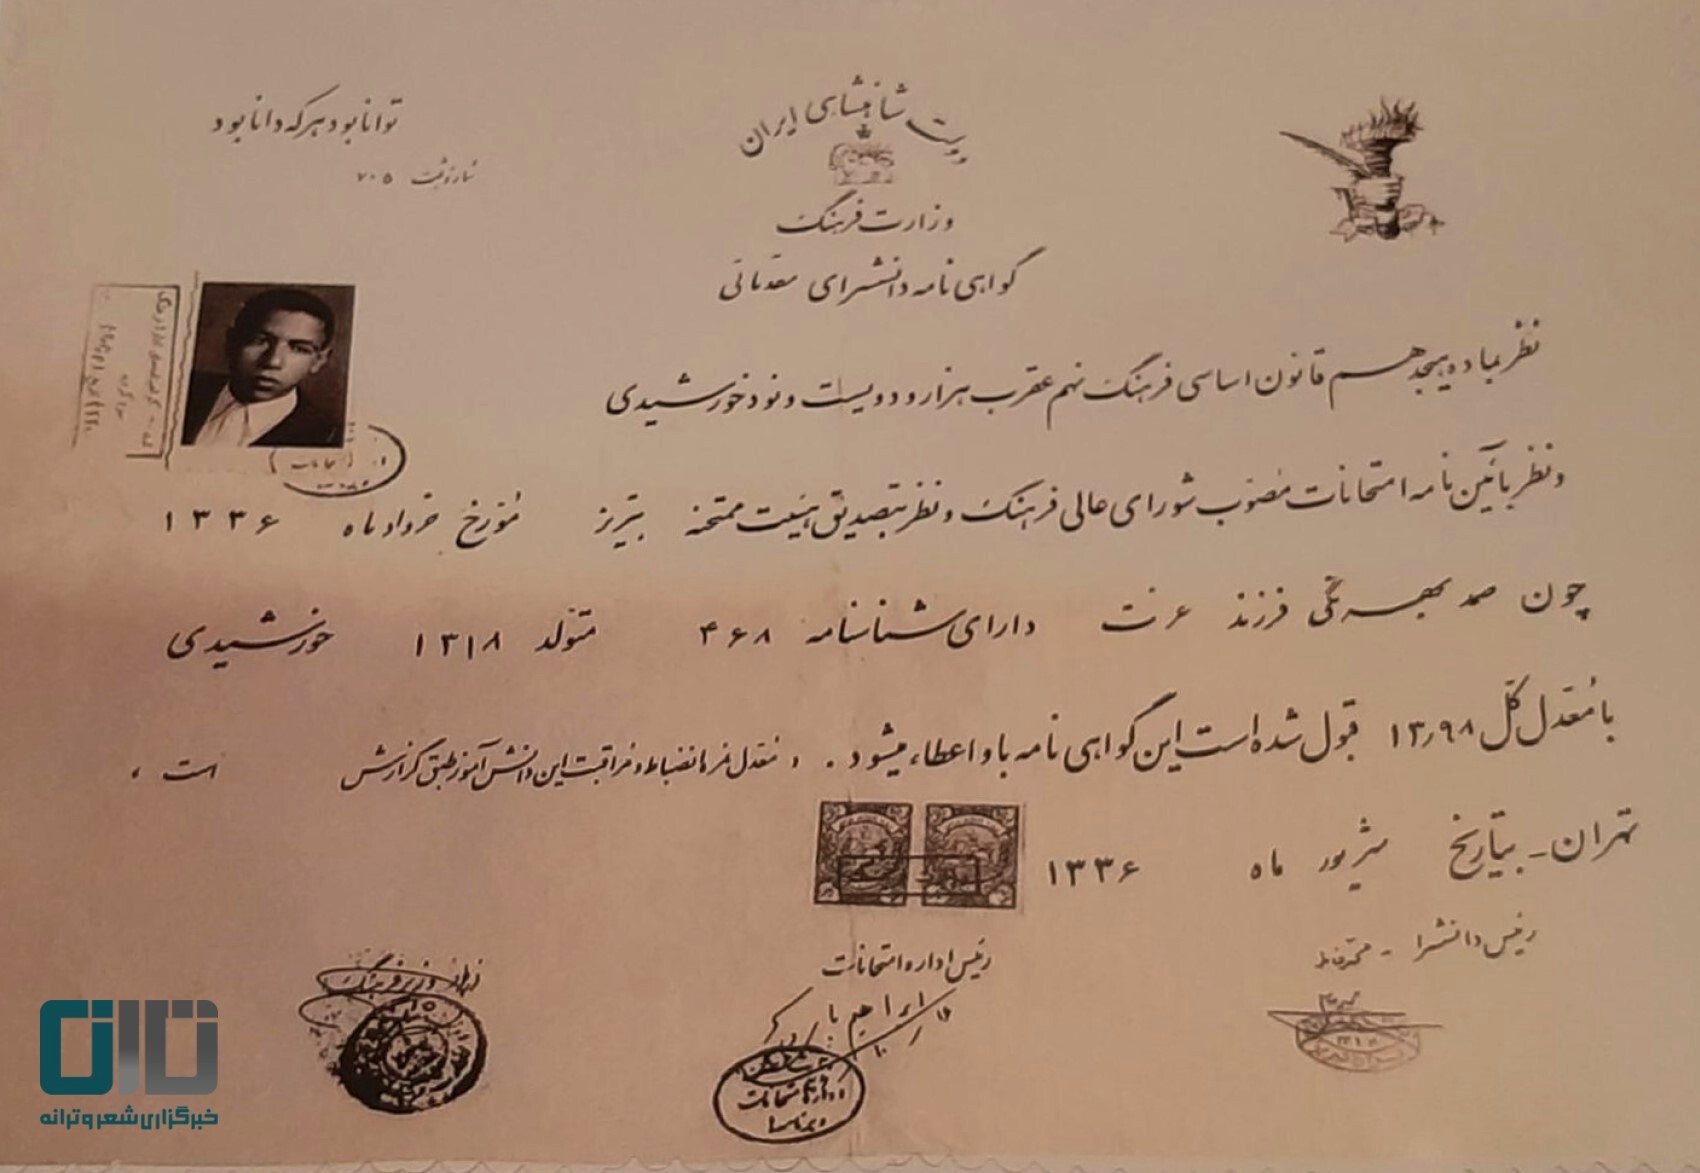 توانا بود هر که دانا بود
شماره ثبت ۷۰۵
دولت شاهنشاهی ایران
وزارت فرهنگ
گواهی نامه دانشسرای مقدماتی
نظر بماده هیجدهم قانون اساسی فرهنگ نهم عقرب هزار و دویست و نود خورشیدی
و نظر بآئین نامه امتحانات مصوب شورای عالی فرهنگ و نظر بتصدیق هیئت ممتحنه تبریز مورخ خرداد ماه ۱۳۳۶
چون صمد بهرنگی فرزند عزت دارای شناسنامه ۴۶۸ متولد ۱۳۱۸ خورشیدی
با معدل کل ۱۳٫۹۸ قبول شده است این گواهی نامه باو اعطاء میشود. و معدل نمره انضباط و مراقبت این دانش آموز طبق گزارش است ،
تهران - بتاریخ شهریور ماه ۱۳۳۶
رئیس دانشسرا -
رئیس اداره امتحانات
وزیر فرهنگ
ابراهیم
ترانه
خبرگزاری شعر و ترانه